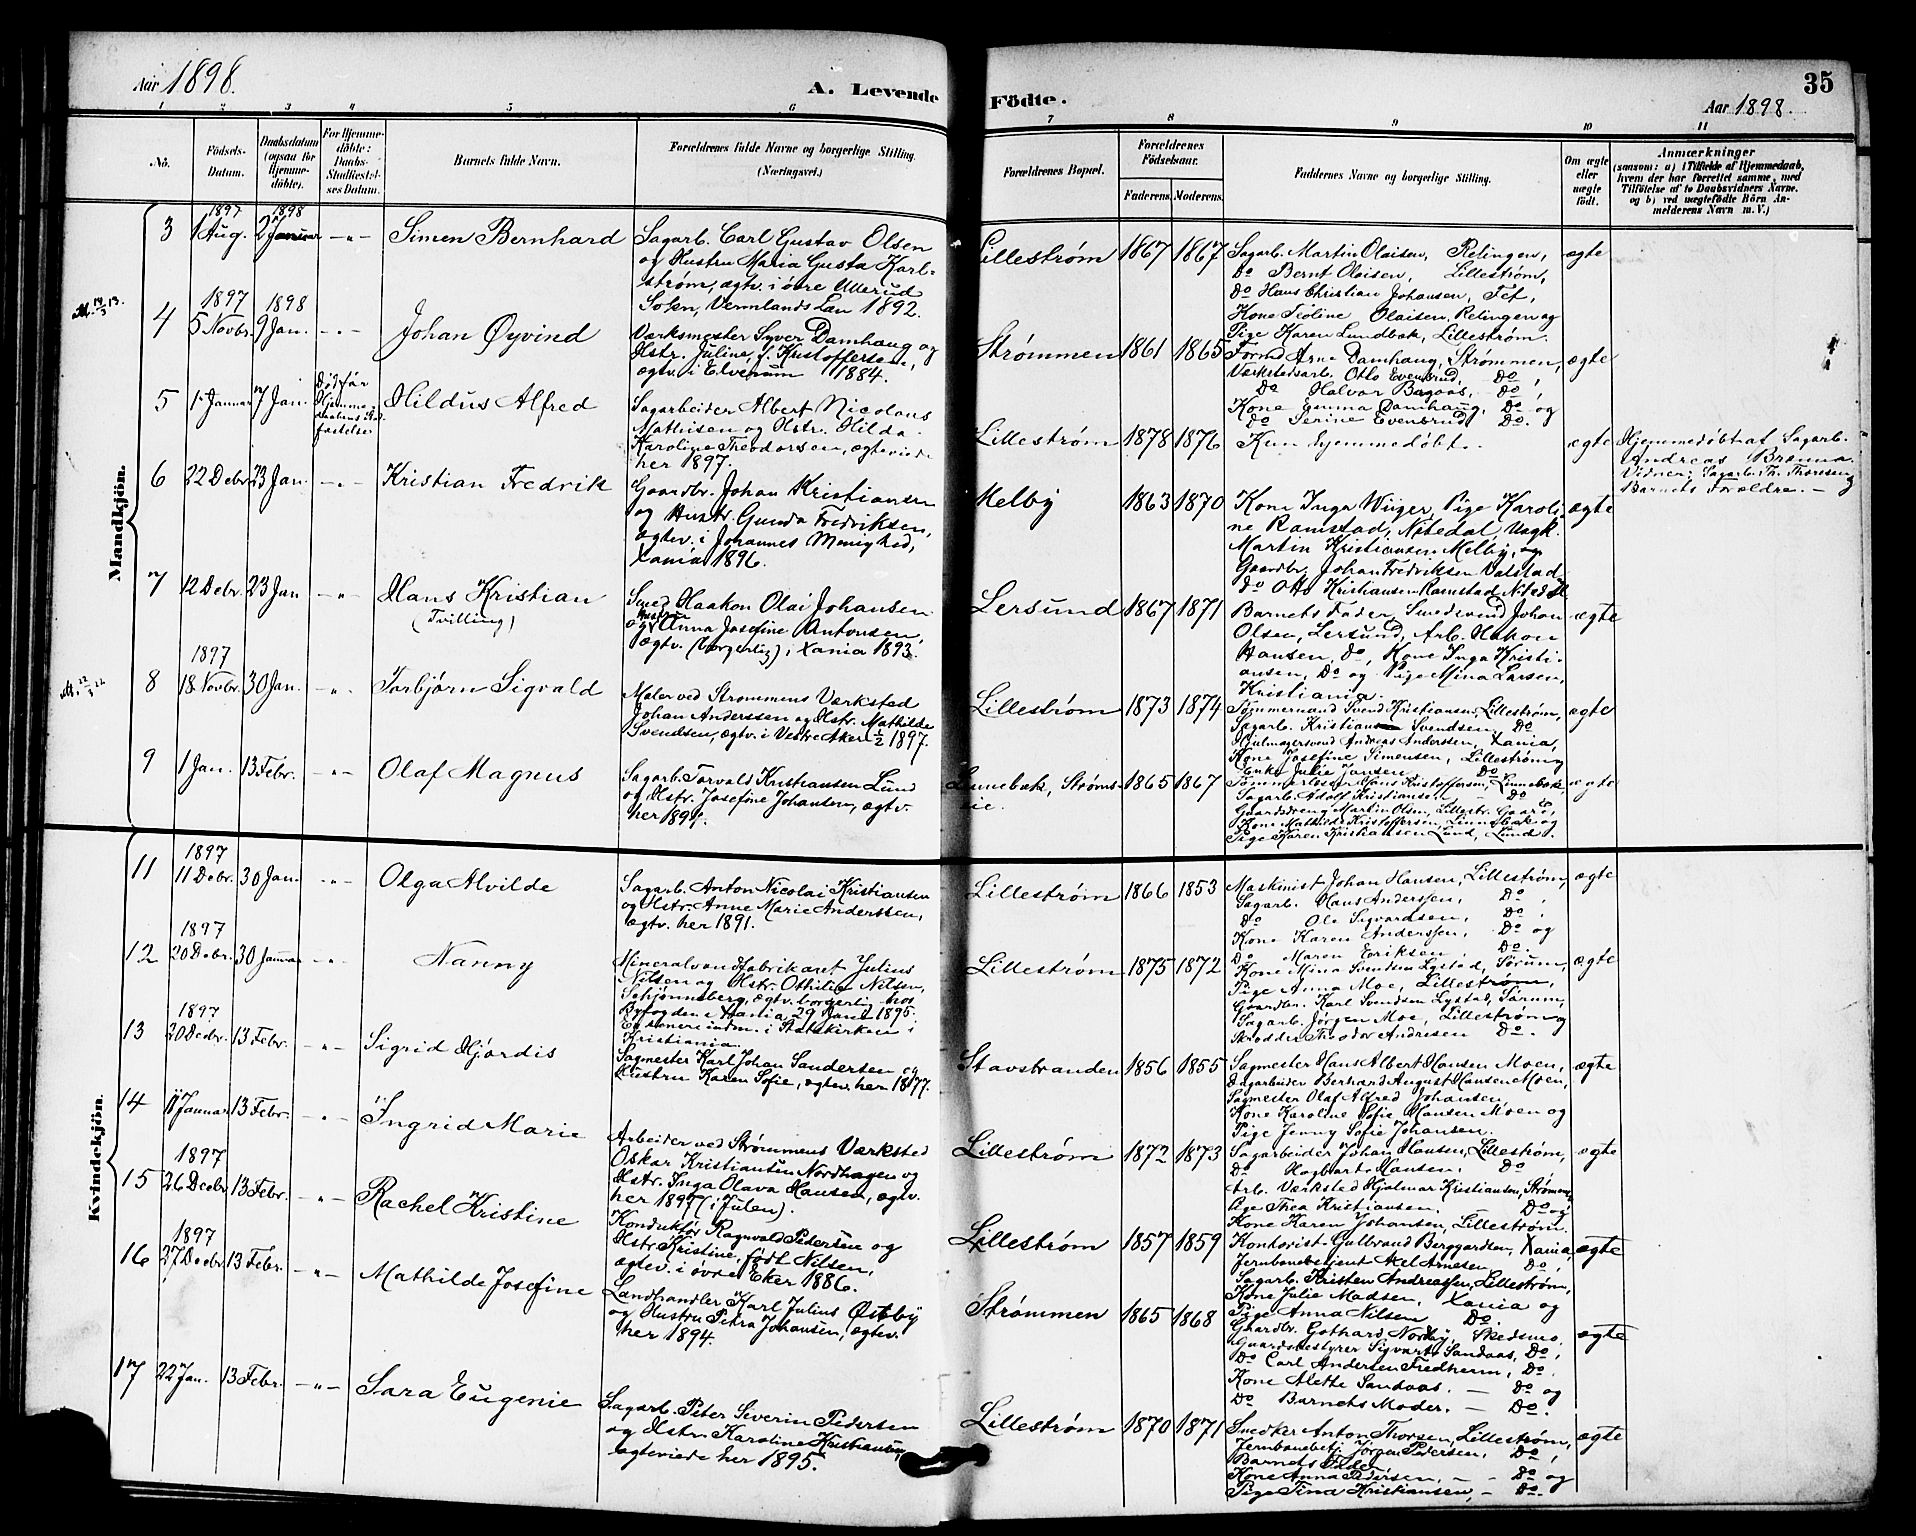 Aar 1898.
A. Levende
Födte.
Aar 1898.
35
1 2 3 4 5 6 7 8 9 10 11
No.
Födsels-Datum.
Daabsdatum (ogsaa for Hjemmedöbte).
For Hjemmedöbte: Daabs-Stadfæstelses Datum.
Barnets fulde Navn.
Forældrenes fulde Navne og borgerlige Stilling. (Næringsvei.)
Forældrenes Bopæl.
Forældrenes Födselsaar.
Faderens. Moderens.
Faddernes Navne og borgerlige Stilling.
Om ægte eller uægte födt.
Anmærkninger
(saasom: a) i Tilfælde af Hjemmedaab, hvem der har forrettet samme, med Tilföielse af to Daabsvidners Navne. og b) ved uægtefödte Börn Anmelderens Navn m. V.)
Mandkjön.
3 1897 1 Aug. 1898 2 Januar -"- Simen Bernhard
Sagarb. Carl Gustav Olsen
og Hustru Maria Gusta Karl-
strøm, ægtv. i övre Ullerud
Sokn, Vermlands Län 1892.
Lillestrøm 1867 1867
Sagarb. Martin Olaisen, Relingen,
Do Bernt Olaisen, Lillestrøm,
Do Hans Christian Johansen, Fet,
Kone Tioline Olaisen, Relingen og
Pige Karen Lundbæk, Lillestrøm.
ægte
4 1897 5 Novbr. 1898 9 Jan. -"- Johan Øyvind
Værksmester Syver Damhaug og
Hstr. Juline, f. Kristoffersen,
ægtv. i Elverum 1884.
Strømmen 1861 1865
Formd Arne Damhaug, Strømmen,
Værkstedsarb. Otto Evenbrud, Do,
Do Halvor Bagaas, Do,
Kone Emma Damhaug, Do og
Do Serine Evenbrud Do.
ægte
5 1 Januar 7 Jan. Död för Hjemme-
Hildus Alfred
Sagarbeider Albert Nicolaus
Mathisen og Hstr. Hilda
Karoline Theodorsen, ægteviede
her 1897.
Lillestrøm 1878 1876
Kun hjemmedøbt.
ægte
Hjemmedøbt af Sagarb.
Andreas Brenna.
Vidner: Sagarb. Th. Thoresen og
Barnets Forældre. -
6 22 Debr. 23 Jan. -"- Kristian Fredrik
Gaardbr. Johan Kristiansen
og Hustr. Gunda Fredriksen,
ægtev. i Johannes Menighed,
Xania 1896.
Melby 1863 1870
Kone Inga Wiiger, Pige Karoli-
ne Ramstad, Nitedal, Ungk.
Martin Kristiansen Melby, og
Gaardbr. Johan Fredriksen Valstad
Do Otto Kristiansen Ramstad, Nitedal
ægte
7 12 Debr. 23 Jan -"- Hans Kristian
(Tvilling)
Smed Haakon Olai Johansen
og Hustru Anna Josefine Antonsen,
ægtv. (borgerlig) i Xania 1893.
Lersund 1867 1871
Barnets Fader, Smedsvend Johan
Olsen, Lersund, Arb. Hakon
Hansen, do, Kone Inga Kristi-
ansen, Do og Pige Mina Larsen,
Kristiania.
ægte
8 1897 18 Novbr. 30 Jan. -"- Torbjørn Sigvald
Maler ved Strømmens Værksted
Johan Anderssen og Hstr. Mathilde
Svendsen, ægtv. i Vestre Aker 1/2 1897.
Lillestrøm 1873 1874
Tømmermand Svend Kristiansen, Lillestrøm,
Sagarb. Kristian Svendsen Do
Hjulmagersvend Andreas Anderssen, Xania,
Kone Josefine Simensen, Lillestrøm og
Enke Julie Jansen Do.
ægte
9 1 Jan. 13 Febr. -"- Olaf Magnus
Sagarb. Torvald Kristiansen Lund
og Hstr. Josefine Johansen, ægtv.
her 1891.
Linnebæk, Strøms-
vie. 1865 1867
Tømmerløser Hans Kristoffersen, Linnebæk,
Sagarb. Adolf Kristiansen Do
Gaardsdreng Martin Olsen, Lillestr. Gaard,
Kone Mathilde Kristoffersen, Linnebæk og
Pige Karen Kristiansen Lund, Lund.
ægte
Kvindekjön.
11 1897 11 Debr. 30 Jan. -"- Olga Alvilde
Sagarb. Anton Nicolai Kristiansen
og Hstr. Anne Marie Anderssen,
ægtv. her 1891.
Lillestrøm 1866 1853
Maskinist Johan Hansen, Lillestrøm,
Sagarb. Hans Anderssen, Do,
Do Ole Sigvardsen, Do,
Kone Karen Anderssen, Do og
Do Maren Eriksen, Do.
ægte
12 1897 20 Debr. 30 Januar -"- Nanny
Mineralvandfabrikant Julius
Nilsen og Hstr. Othilie Nilsen,
Schjønneberg, ægtv. borgerlig hos
Byfogden i Xania 29 Juni 1895.
i Statskirken i
Kristiania.
Lillestrøm 1875 1872
Kone Mina Svendsen Lystad, Sørum,
Pige Anna Moe, Lillestrøm,
Gaardbr. Karl Svendsen Lystad, Sørum,
Sagarb. Jørgen Moe, Lillestrøm og
Skrædder Theodor Andresen Do.
ægte
13 1897 20 Decbr. 13 Febr. -"- Sigrid Hjørdis
Sagmester Karl Johan Sandersen og
Hustru Karen Sofie, ægtev. her 1877.
Stavstranden 1856 1855
Sagmester Hans Albert Hansen Moen,
Sagarbeider Berhard August Hansen Moen,
Sagmester Olaf Alfred Johansen,
Kone Karoline Sofie Hansen Moen og
Pige Jenny Sofie Johansen.
ægte
14 8 Januar 13 Febr. -"- Ingrid Marie
Arbeider ved Strømmens Værksted
Oskar Kristiansen Nordhagen og
Hstr. Inga Olava Hansen, ægtv.
her 1897 (i Julen).
Lillestrøm 1872 1873
Sagarbeider Johan Hansen, Lillestrøm,
Do Hagbart Hansen, Do,
Arb. Værksted Hjalmar Kristiansen, Strømmen,
Pige Thea Kristiansen, Do og
Kone Karen Johansen, Lillestrøm.
ægte
15 1897 26 Decbr. 13 Febr. -"- Rachel Kristine
Konduktør Ragnvald Pedersen og
Hstr. Kristine, født Nilsen,
ægtev. i øvre Eker 1886.
Lillestrøm 1857 1859
Kontorist Gulbrand Berggardsen, Xania,
Jernbanebetjent Axel Arnesen Do,
Sagarb. Kristen Andreassen, Lillestrøm,
Kone Julie Madsen, Xania og
Pige Anna Nilsen Do.
ægte
16 1897 27 Decbr. 13 Febr. -"- Mathilde Josefine
Landhandler Karl Julius Østby
og Hustru Petra Johansen, ægtev.
her 1894.
Strømmen 1865 1868
Gaardbr. Gothard Nordby, Skedsmo,
Gaardsbestyrer Sigvart Sandaas, Do,
Do Carl Andersen Fredheim, Do,
Kone Alette Sandaas. - Do og
Do Barnets Moder. - Do.
ægte
17 22 Jan. 13 Febr. -"- Sara Eugenie
Sagarb. Peter Severin Pedersen
og Hstr. Karoline Kristiansen,
ægteviede her 1895.
Lillestrøm 1870 1871
Snedker Anton Thorsen, Lillestrøm,
Jernbanebetj. Jørgen Pedersen, Do,
Barnets Fader
Kone Anna Pedersen, - - Do og
Pige Tina Kristiansen, - Do.
ægte